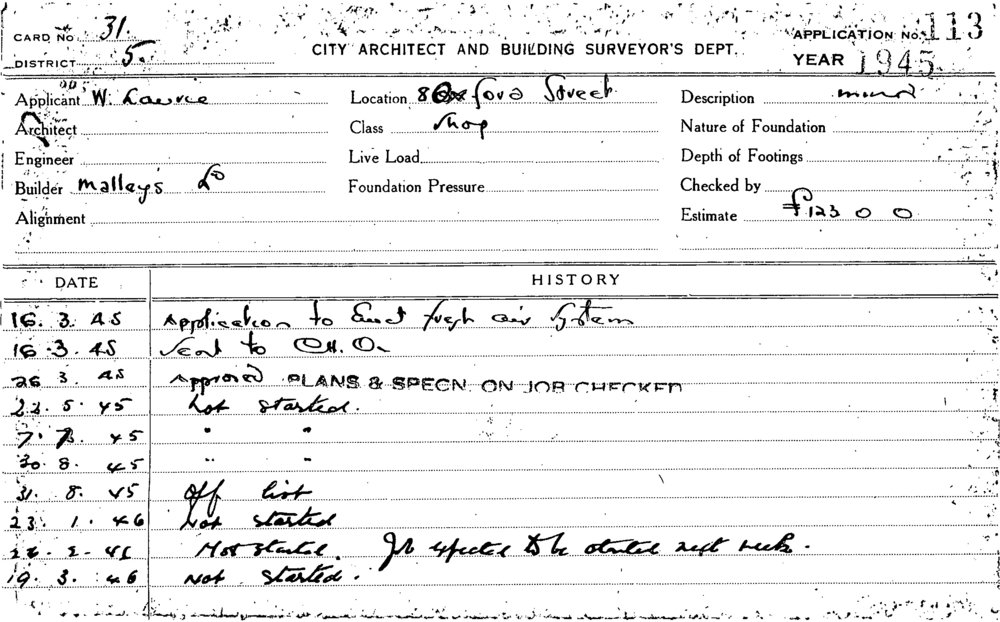 CARD No 31.
DISTRICT 5.
CITY ARCHITECT AND BUILDING SURVEYOR'S DEPT.
APPLICATION No. 113
YEAR 1945
Applicant W. Lawrie
Location 8 Oxford Street
Description minor
Architect
Class Shop
Nature of Foundation
Engineer
Live Load
Depth of Footings
Builder Malleys Ld
Foundation Pressure
Checked by
Alignment
Estimate £123 0 0
DATE HISTORY
16. 3. 45 Application to Erect fresh air System
16. 3. 45 Sent to C.H.O.
26 3. 45 Approved PLANS & SPECN. ON JOB CHECKED
22. 5. 45 Not started.
7. 7. 45 " "
30. 8. 45 " "
31. 8. 45 Off list
23. 1. 46 Not started
2. 46 Not started. Job expected to be started next week.
19. 3. 46 Not started.